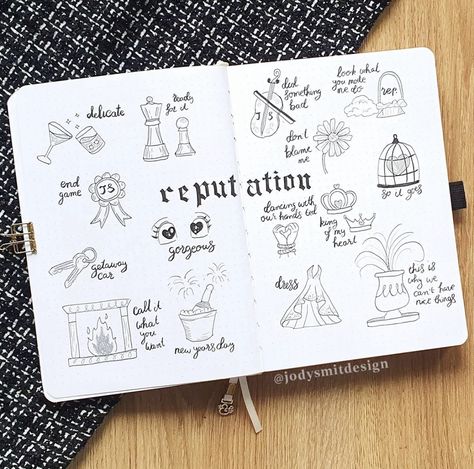 delicate
Ready
for it
did
something
bad
look what
you made
me do
rep.
JS
don't
blame
me
end
game
JS
reputation
so it goes
dancing with
our hands tied
king
of my
heart
gorgeous
getaway
car
call it
what
you
want
new years day
dress
this is
why we
can't have
nice things
@jodysmitdesign